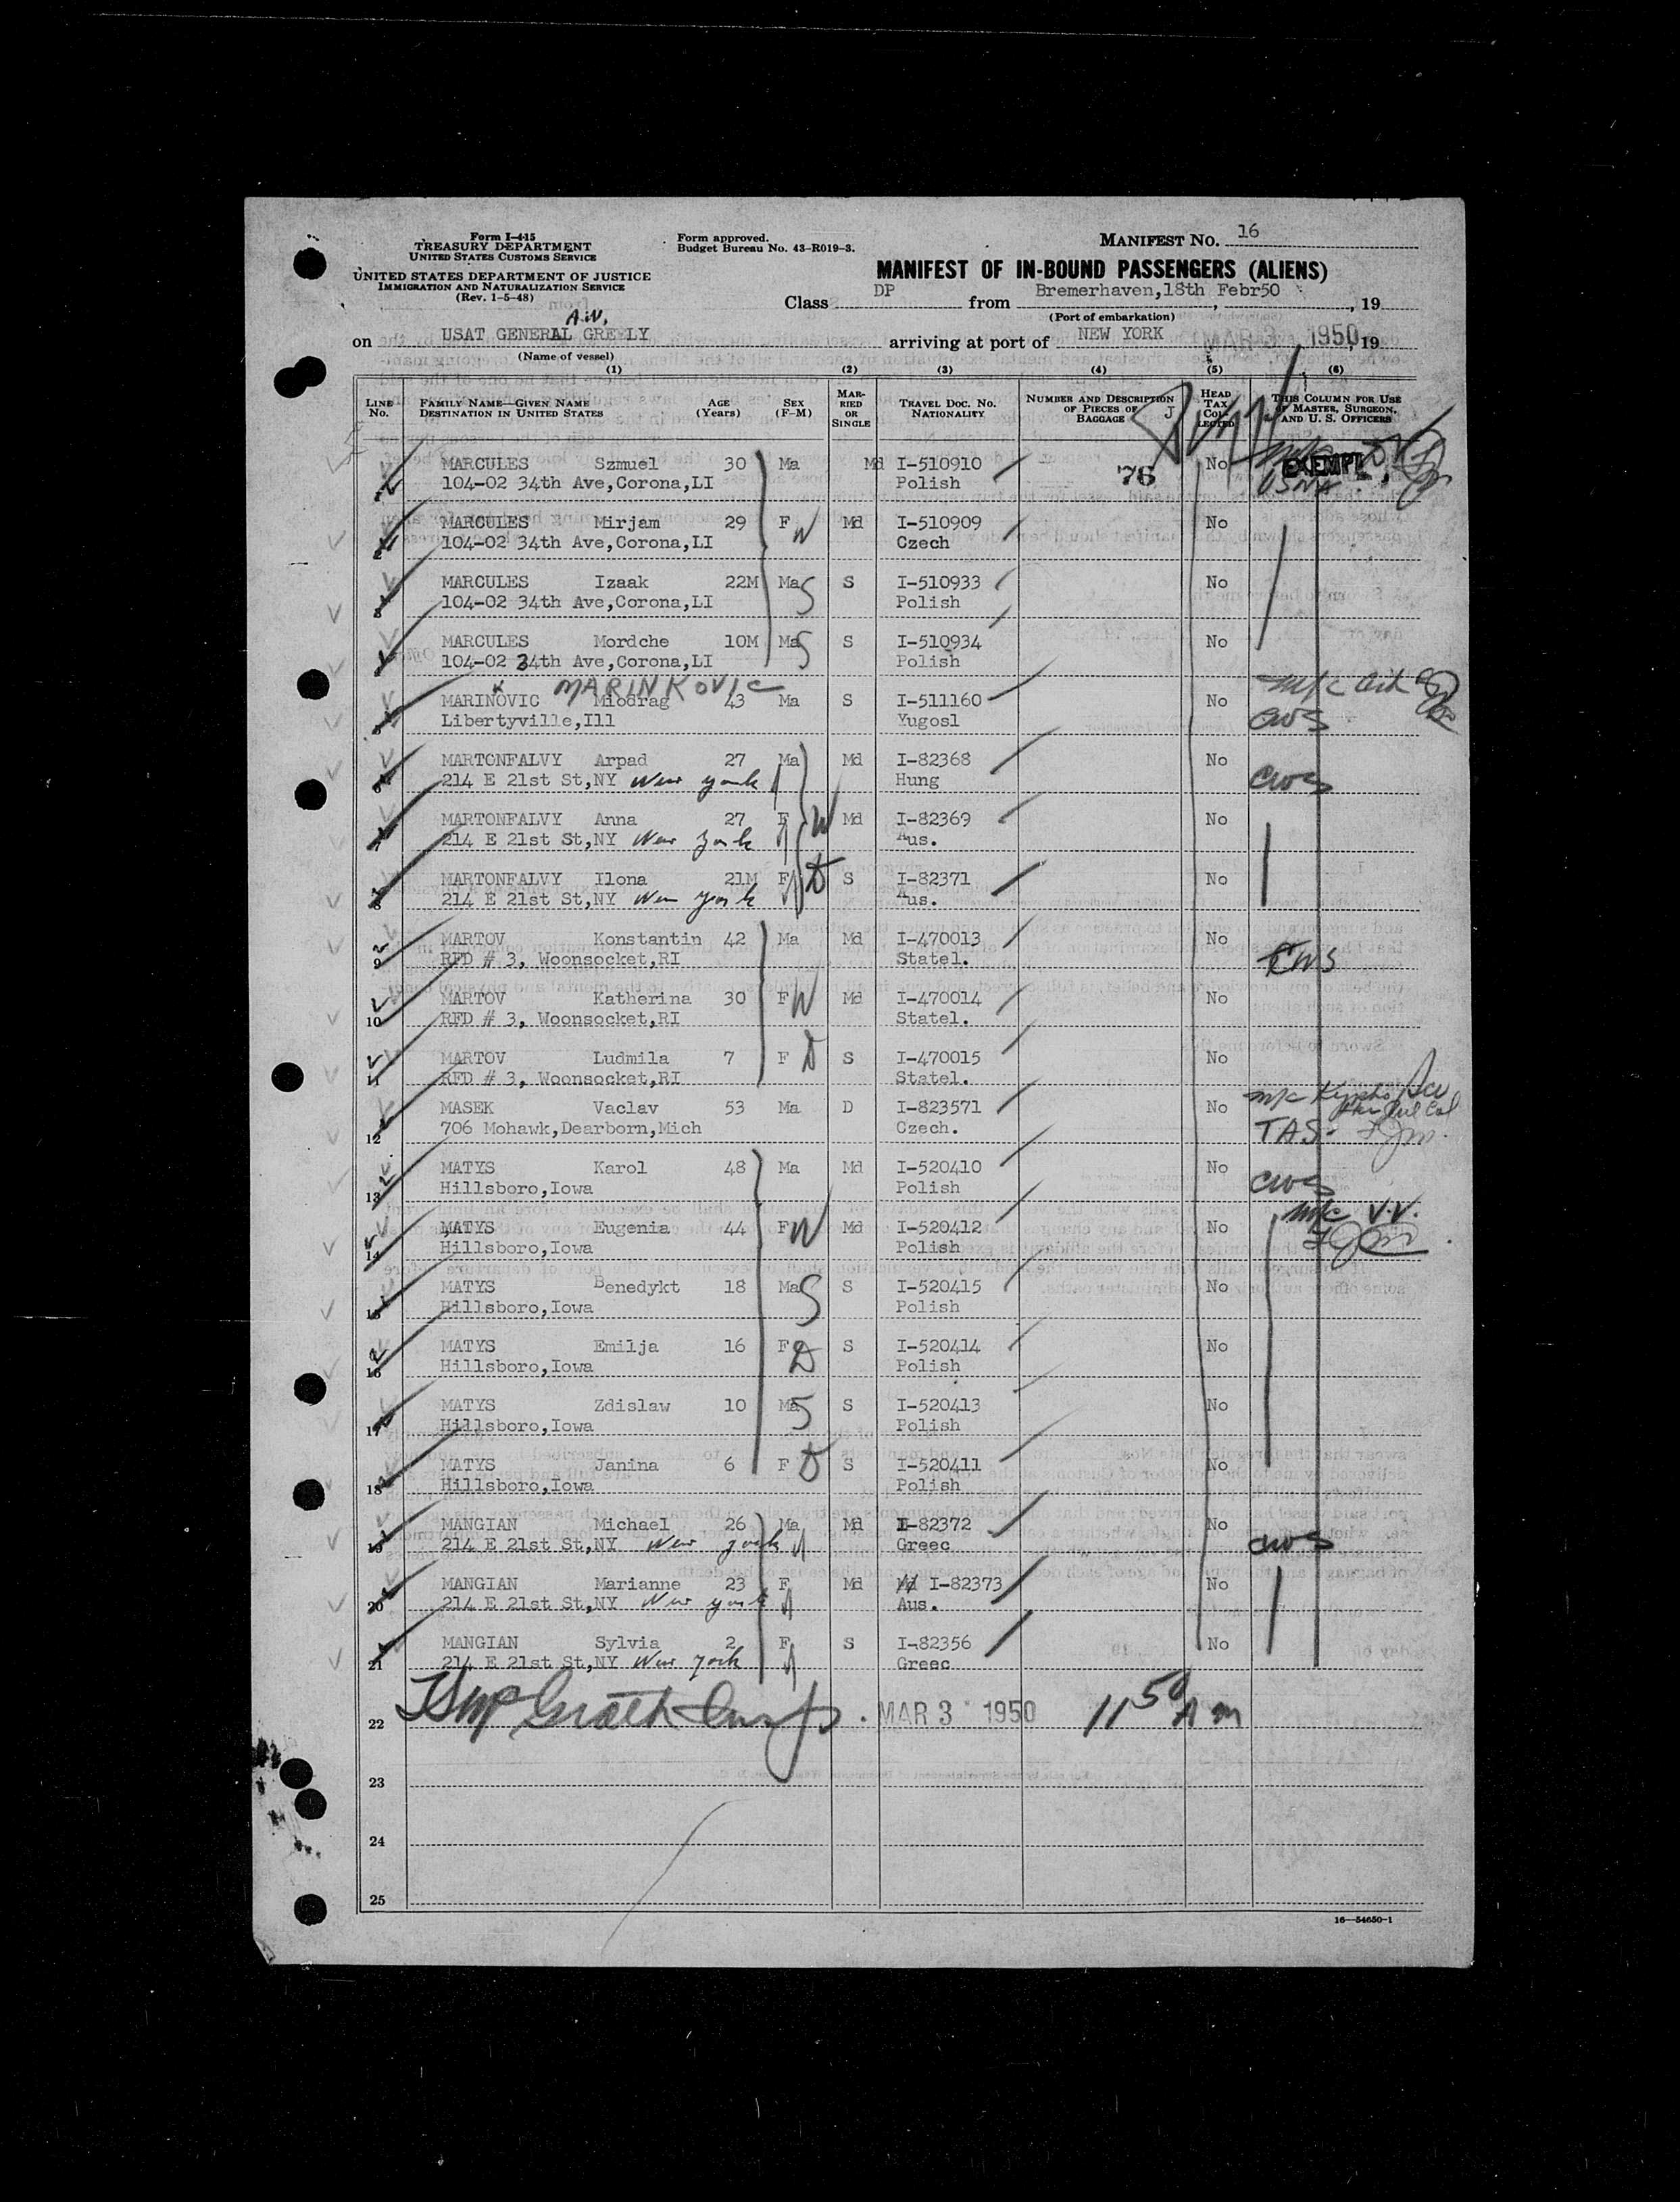 Form I-415
TREASURY DEPARTMENT
UNITED STATES CUSTOMS SERVICE
UNITED STATES DEPARTMENT OF JUSTICE
IMMIGRATION AND NATURALIZATION SERVICE
(Rev. 1-5-48)
Form approved.
Budget Bureau No. 43-R019-3.
MANIFEST NO. 16
MANIFEST OF IN-BOUND PASSENGERS (ALIENS)
Class DP from Bremerhaven,18th Febr50, 19
(Port of embarkation)
A.W.
on USAT GENERAL GREELY arriving at port of NEW YORK MAR 3 1950, 19
(Name of vessel)
(1) (2) (3) (4) (5) (6)
LINE No. FAMILY NAME—GIVEN NAME DESTINATION IN UNITED STATES AGE (Years) SEX (F-M) MARRIED OR SINGLE TRAVEL DOC. NO. NATIONALITY NUMBER AND DESCRIPTION OF PIECES OF BAGGAGE HEAD TAX COLLECTED THIS COLUMN FOR USE OF MASTER, SURGEON, AND U. S. OFFICERS
MARCULES Szmuel 30 Ma Md I-510910 76 No EXEMPT
104-02 34th Ave,Corona,LI Polish USNA
MARCULES Mirjam 29 F W Md I-510909 No
2 104-02 34th Ave,Corona,LI Czech
MARCULES Izaak 22M Ma S S I-510933 No
3 104-02 34th Ave,Corona,LI Polish
MARCULES Mordche 10M Ma S S I-510934 No
104-02 34th Ave,Corona,LI Polish
MARINKOVIC
MARINOVIC Miodrag 43 Ma S I-511160 No m/c
Libertyville,Ill Yugosl CWS
MARTONFALVY Arpad 27 Ma Md I-82368 No
214 E 21st St,NY New york Hung CWS
MARTONFALVY Anna 27 F W Md I-82369 No
7 214 E 21st St,NY New york Aus.
MARTONFALVY Ilona 21M F D S I-82371 No
8 214 E 21st St,NY New york Aus.
MARTOV Konstantin 42 Ma Md I-470013 No
9 RFD # 3, Woonsocket,RI Statel. CWS
MARTOV Katherina 30 F W Md I-470014 No
10 RFD # 3, Woonsocket,RI Statel.
MARTOV Ludmila 7 F D S I-470015 No
11 RFD # 3, Woonsocket,RI Statel.
MASEK Vaclav 53 Ma D I-823571 No m/c
12 706 Mohawk,Dearborn,Mich Czech. TAS
MATYS Karol 48 Ma Md I-520410 No
13 Hillsboro,Iowa Polish CWS
MATYS Eugenia 44 F W Md I-520412 No m/c V.V.
14 Hillsboro,Iowa Polish
MATYS Benedykt 18 Ma S S I-520415 No
15 Hillsboro,Iowa Polish
MATYS Emilja 16 F D S I-520414 No
16 Hillsboro,Iowa Polish
MATYS Zdislaw 10 Ma S S I-520413 No
17 Hillsboro,Iowa Polish
MATYS Janina 6 F D S I-520411 No
18 Hillsboro,Iowa Polish
MANGIAN Michael 26 Ma Md I-82372 No
19 214 E 21st St,NY New york Greec CWS
MANGIAN Marianne 23 F Md I-82373 No
20 214 E 21st St,NY New york Aus.
MANGIAN Sylvia 2 F S I-82356 No
21 214 E 21st St,NY New york Greec
22 MAR 3 1950 11 50 AM
23
24
25
16—54650-1